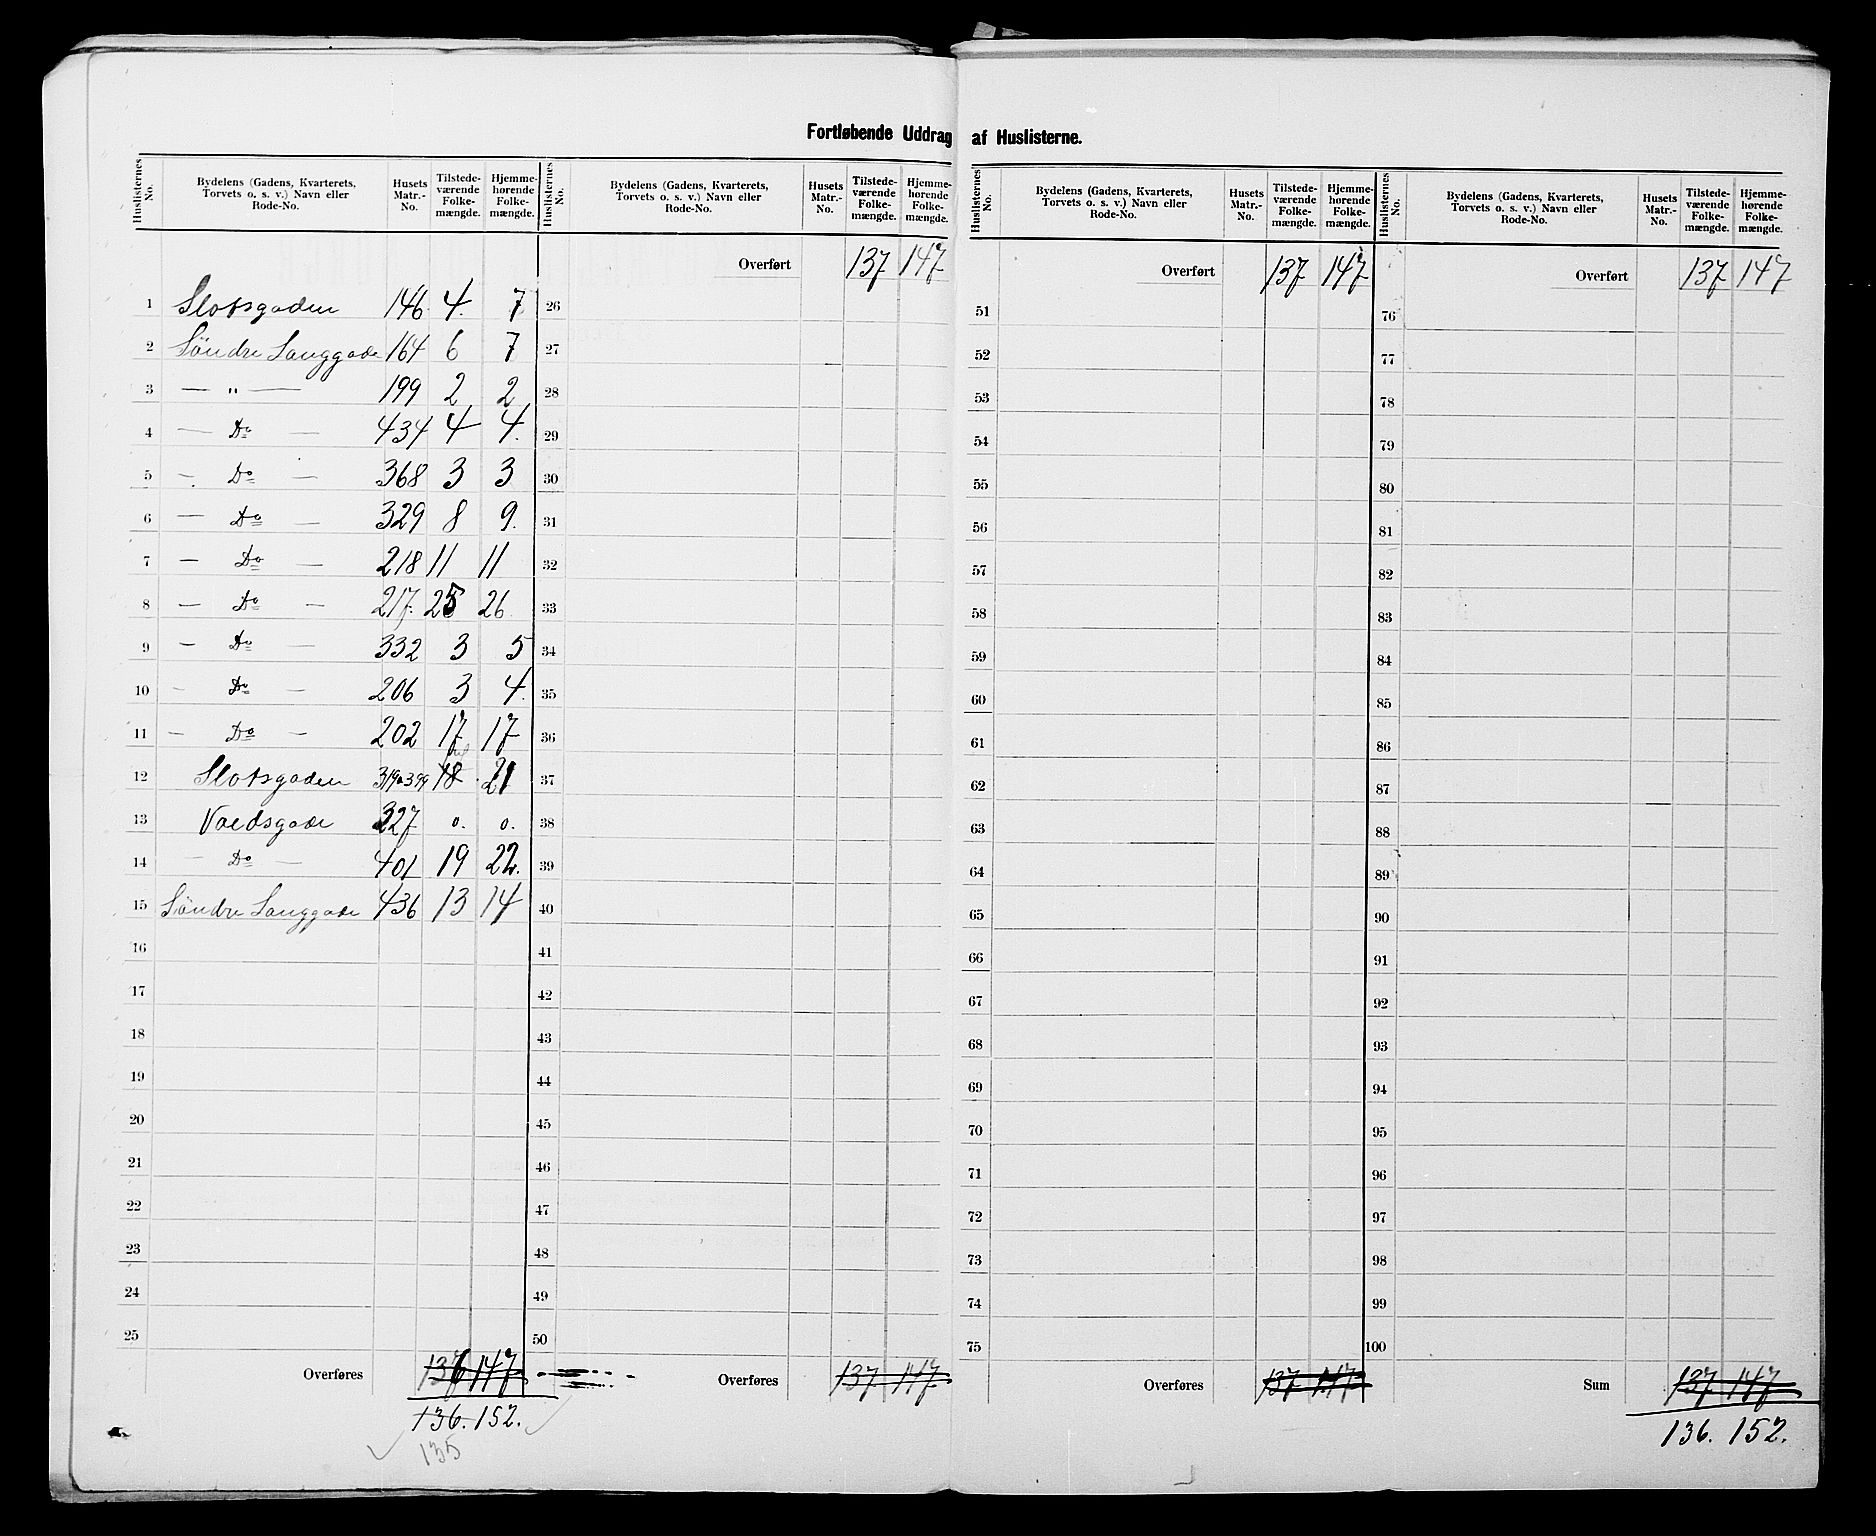 Fortløbende Uddrag af Huslisterne.
Huslisternes No. Bydelens (Gadens, Kvarterets, Torvets o. s. v.) Navn eller Rode-No. Husets Matr.-No. Tilstedeværende Folkemængde. Hjemmehørende Folkemængde.
1 Slotsgaden 146 4. 7
2 Söndre Langgade 164 6 7
3 — " — 199 2 2
4 — Do — 434 4 4.
5 — Do — 368 3 3
6 — Do — 329 8 9.
7 — Do — 218 11 11
8 — Do — 217. 25 26
9 — Do — 332 3 5
10 — Do — 206 3 4.
11 — Do — 202 17 17
12 Slotsgaden 319a399 18 21
13 327 0. 0.
14 — Do — 401 19 22.
15 Söndre Langgade 436 13 14
16
17
18
19
20
21
22
23
24
25
Overføres 137 147
136. 152.
135
Huslisternes No. Bydelens (Gadens, Kvarterets, Torvets o. s. v.) Navn eller Rode-No. Husets Matr.-No. Tilstedeværende Folkemængde. Hjemmehørende Folkemængde.
Overført 137 147
26
27
28
29
30
31
32
33
34
35
36
37
38
39
40
41
42
43
44
45
46
47
48
49
50
Overføres 137 147
Huslisternes No. Bydelens (Gadens, Kvarterets, Torvets o. s. v.) Navn eller Rode-No. Husets Matr.-No. Tilstedeværende Folkemængde. Hjemmehørende Folkemængde.
Overført 137 147
51
52
53
54
55
56
57
58
59
60
61
62
63
64
65
66
67
68
69
70
71
72
73
74
75
Overføres 137 147
Huslisternes No. Bydelens (Gadens, Kvarterets, Torvets o. s. v.) Navn eller Rode-No. Husets Matr.-No. Tilstedeværende Folkemængde. Hjemmehørende Folkemængde.
Overført 137 147
76
77
78
79
80
81
82
83
84
85
86
87
88
89
90
91
92
93
94
95
96
97
98
99
100
Sum 137 147
136. 152.